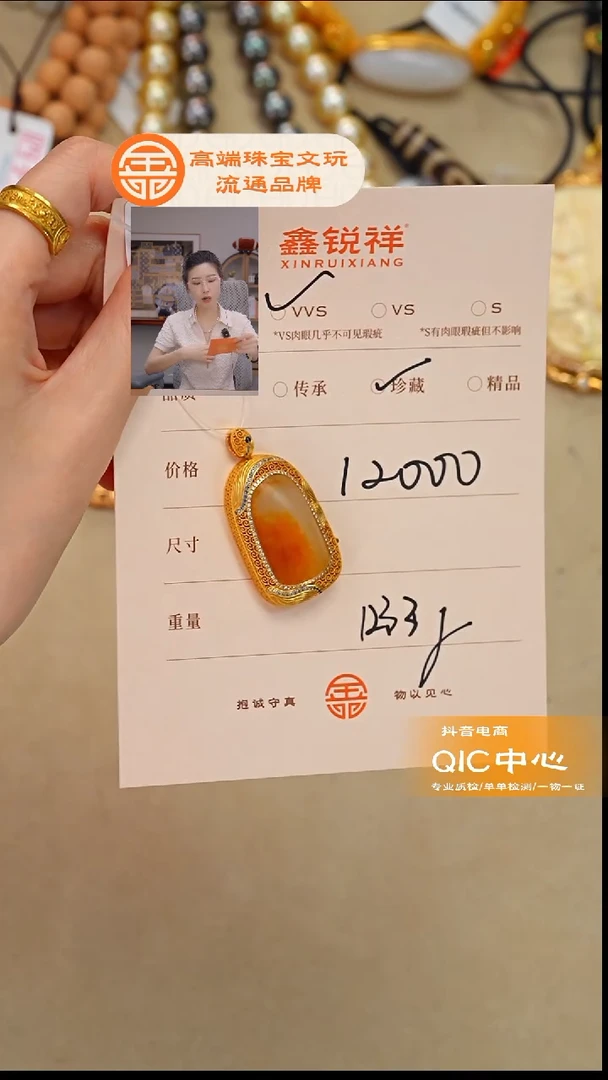 高端珠宝文玩
流通品牌
鑫锐祥®
XINRUIXIANG
VVS VS S
*VS肉眼几乎不可见瑕疵 *S有肉眼瑕疵但不影响
品质 传承 珍藏 精品
价格 12000
尺寸
重量
抱诚守真 物以见心
抖音电商
QIC中心
专业质检/单单检测/一物一证